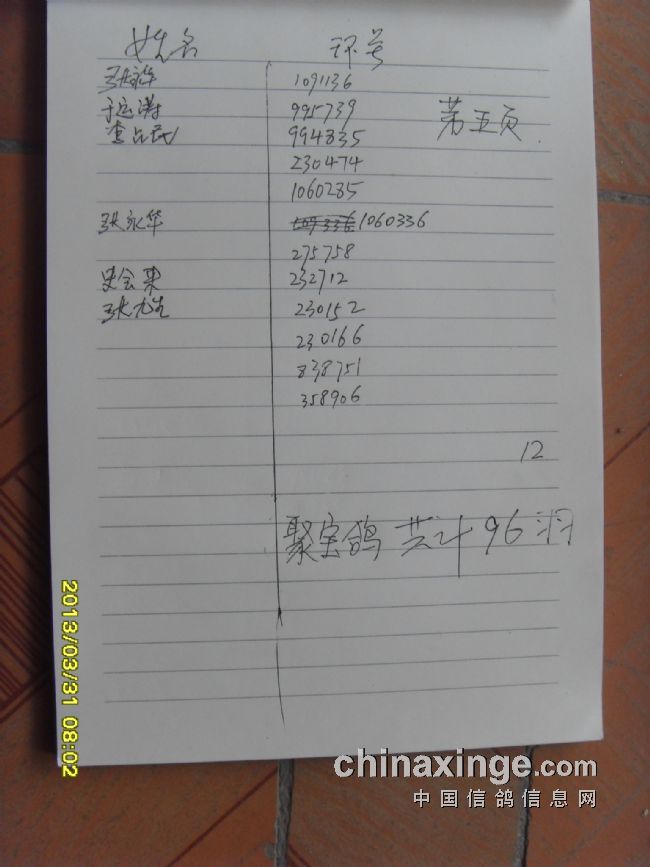 姓名 环号
张永华 1091136
995739
第五页
查品民 994835
230474
1060285
张永华 1060336
275758
史会来 232712
张九光 230152
230166
838751
358906
12
聚宝鸽 共计96羽
2013/03/31 08:02
chinaxinge.com
中国信鸽信息网